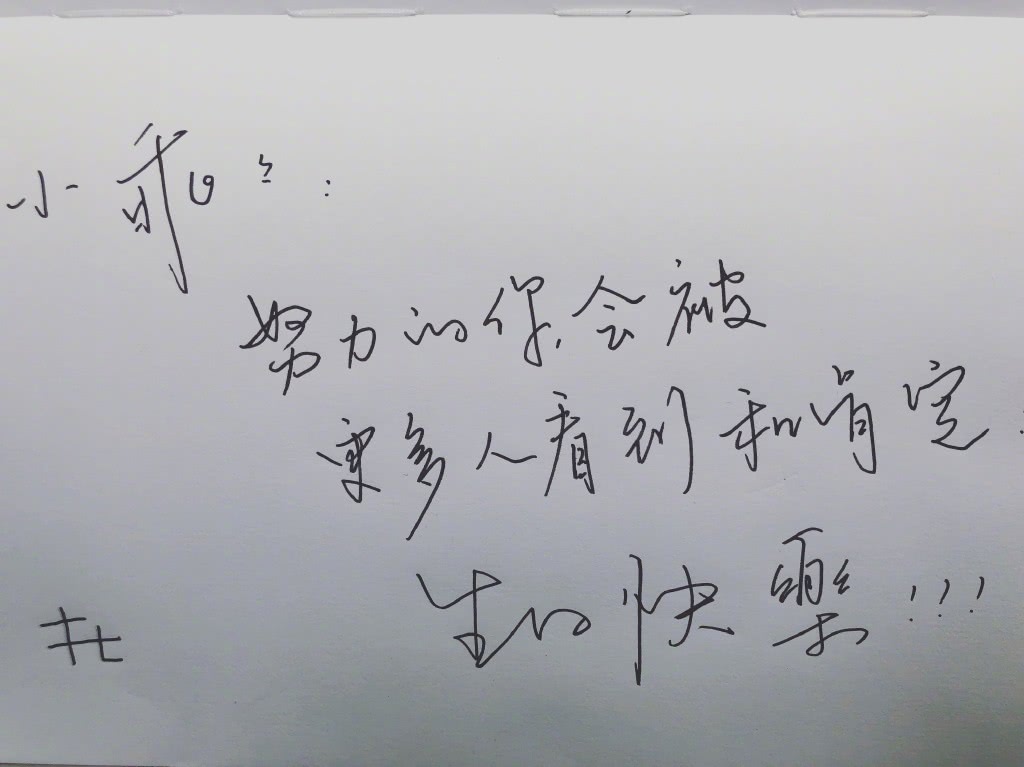 小乖々：
努力的你,会被
更多人看到和肯定.
生日快樂!!!